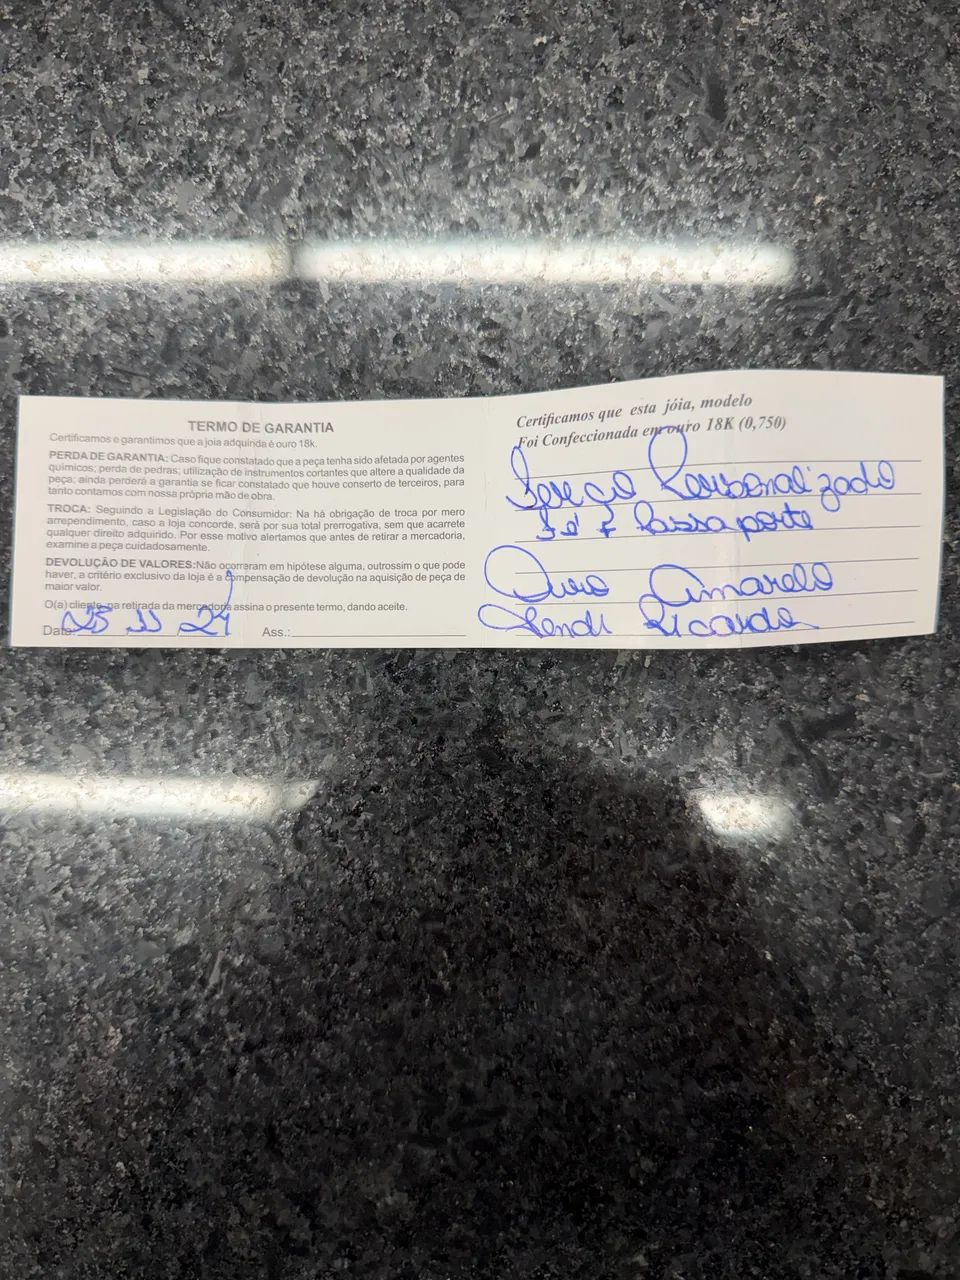 TERMO DE GARANTIA
Certificamos e garantimos que a joia adquirida é ouro 18k.
PERDA DE GARANTIA: Caso fique constatado que a peça tenha sido afetada por agentes
químicos; perda de pedras; utilização de instrumentos cortantes que altere a qualidade da
peça; ainda perderá a garantia se ficar constatado que houve conserto de terceiros, para
tanto contamos com nossa própria mão de obra.
TROCA: Seguindo a Legislação do Consumidor: Na há obrigação de troca por mero
arrependimento, caso a loja concorde, será por sua total prerrogativa, sem que acarrete
qualquer direito adquirido. Por esse motivo alertamos que antes de retirar a mercadoria,
examine a peça cuidadosamente.
DEVOLUÇÃO DE VALORES:Não ocorreram em hipótese alguma, outrossim o que pode
haver, a critério exclusivo da loja é a compensação de devolução na aquisição de peça de
maior valor.
O(a) cliente, na retirada da mercadoria assina o presente termo, dando aceite.
Data: 25 11 24 Ass.:
Certificamos que esta jóia, modelo
Foi Confeccionada em ouro 18K (0,750)
Personalizado
Passaporte
Ouro Amarelo
Ricardo